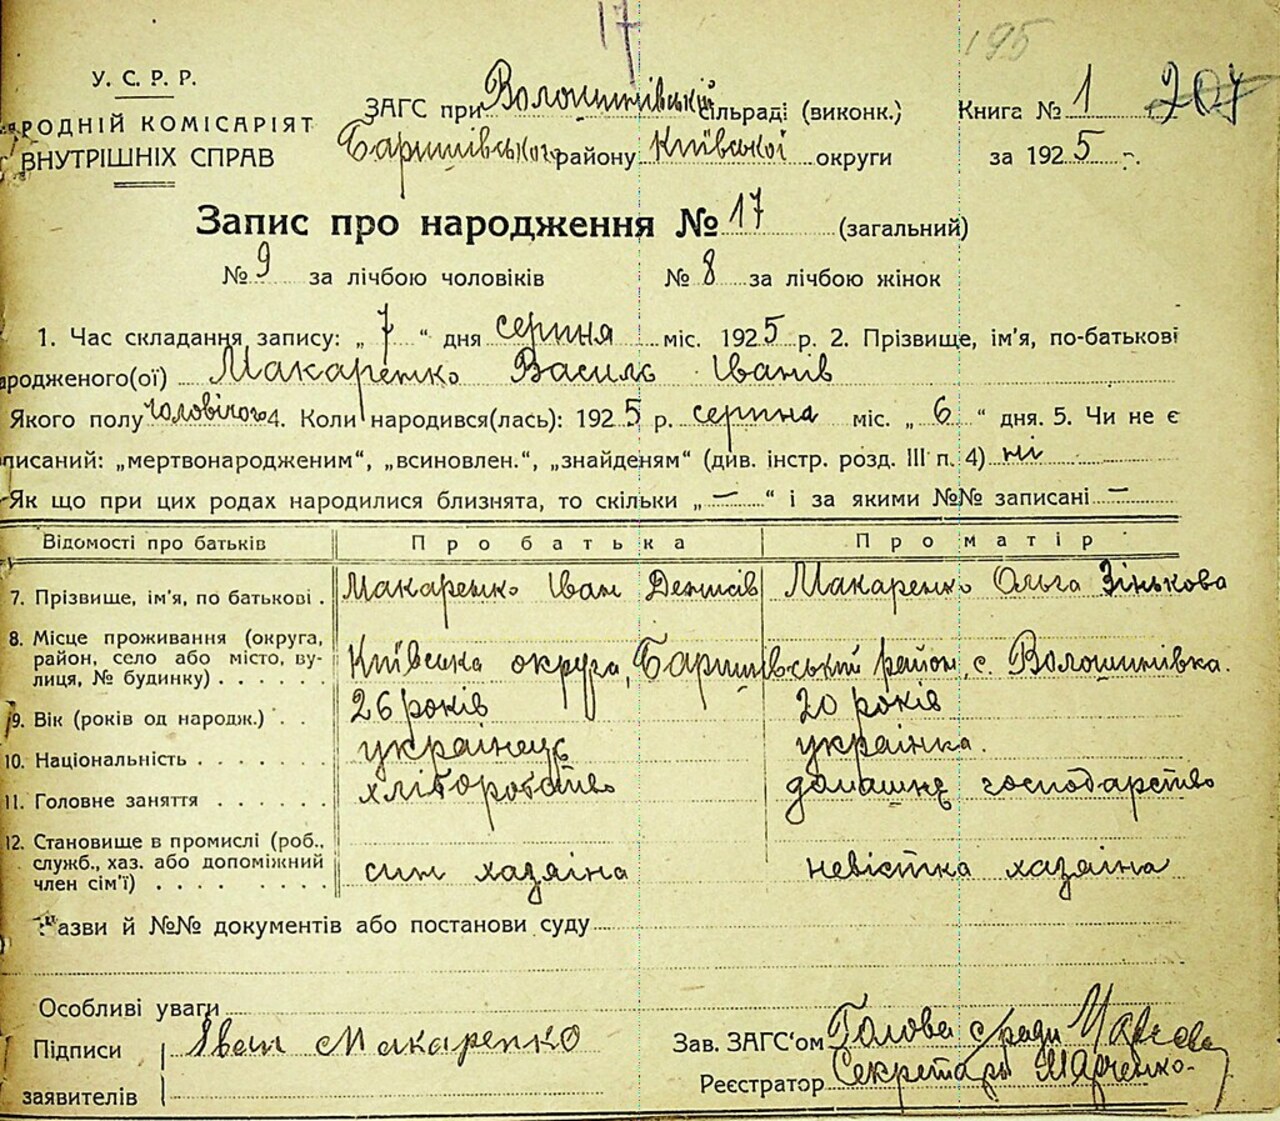 17
195
У. С. Р. Р.
РОДНІЙ КОМІСАРІЯТ
ВНУТРІШНІХ СПРАВ
ЗАГС при Волошинівській сільраді (виконк.)
Баришівського району Київської округи
Книга № 1 207
за 1925
Запис про народження № 17 (загальний)
№ 9 за лічбою чоловіків № 8 за лічбою жінок
1. Час складання запису: „ 7 “ дня серпня міс. 1925 р. 2. Прізвище, ім'я, по-батькові
ародженого(ої) Макаренко Василь Іванів
Якого полу чоловічого 4. Коли народився(лась): 1925 р. серпня міс. „ 6 “ дня. 5. Чи не є
писаний: „мертвонародженим“, „всиновлен.“, „знайденям“ (див. інстр. розд. III п. 4) ні
Як що при цих родах народилися близнята, то скільки „ — “ і за якими №№ записані —
Відомості про батьків Про батька Про матір
7. Прізвище, ім'я, по батькові . Макаренко Іван Денисів Макаренко Ольга Зінькова
8. Місце проживання (округа,
район, село або місто, ву-
лиця, № будинку) . . . . . . Київська округа, Баришівський район, с. Волошинівка.
9. Вік (років од народж.) . . 26 років 20 років
10. Національність . . . . . . . українець українка.
11. Головне заняття . . . . . . хліборобство домашнє господарство
12. Становище в промислі (роб.,
служб., хаз. або допоміжний
член сім'ї) . . . . . . . . син хазяїна невістка хазяїна
азви й №№ документів або постанови суду
Особливі уваги
Підписи Іван Макаренко
заявителів
Зав. ЗАГС'ом Голова с/ради
Реєстратор Секретарь Марченко